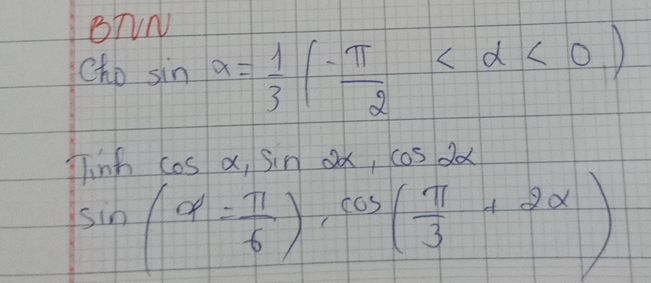 BTVN
Cho sin α = 1/3 (-π/2 < α < 0)
Tính cos α, sin 2α, cos 2α
sin (α - π/6), cos (π/3 + 2α)